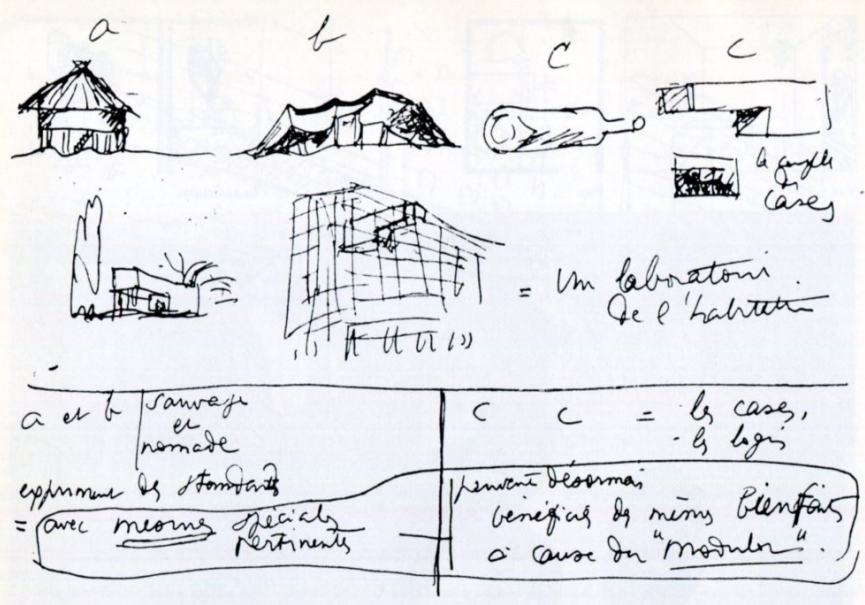 a
b
C
C
le gouffre
des
cases
= un laboratoire
de l'habitation
a et b
sauvage
et
nomade
expriment des standards
= avec mesures spéciales
pertinentes
C C = les cases,
les logis
peuvent désormais
bénéficier des mêmes bienfaits
à cause du "Modulor".